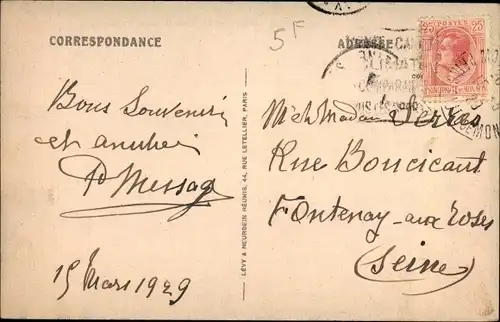 5F
CORRESPONDANCE
ADRESSE
25 POSTES 25
Bons Souvenirs
et
Message
15 Mars 1929
LÉVY & NEURDEIN RÉUNIS, 44, RUE LETELLIER, PARIS
M et Madame Verrès
Rue Boucicaut
Fontenay-aux-Roses
(Seine)